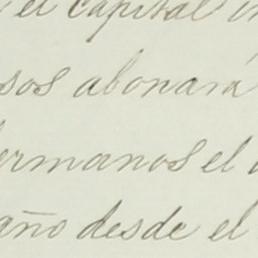 el capital
sos abonará
hermanos el
año desde el